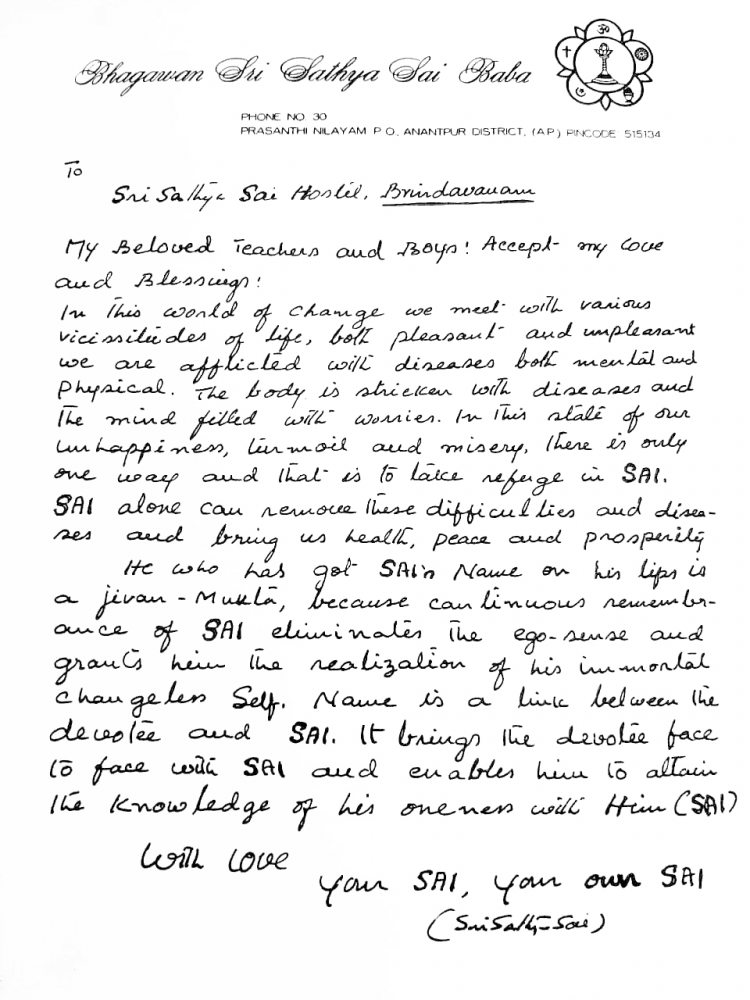 Bhagawan Sri Sathya Sai Baba
PHONE NO. 30
PRASANTHI NILAYAM P. O., ANANTPUR DISTRICT, (A.P.) PINCODE 515134
To
Sri Sathya Sai Hostel, Brindavanam
My Beloved Teachers and Boys! Accept my love
and Blessings!
In this world of change we meet with various
vicissitudes of life, both pleasant and unpleasant
we are afflicted with diseases both mental and
Physical. The body is stricken with diseases and
the mind filled with worries. In this state of our
unhappiness, turmoil and misery, there is only
one way and that is to take refuge in SAI.
SAI alone can remove these difficulties and disea-
ses and bring us health, peace and prosperity
He who has got SAI's Name on his lips is
a jivan-Mukta, because continuous remembr-
ance of SAI eliminates the ego-sense and
grants him the realization of his immortal
changeless Self. Name is a link between the
devotee and SAI. It brings the devotee face
to face with SAI and enables him to attain
the knowledge of his oneness with Him (SAI)
With love
your SAI, your own SAI
(Sri Sathya Sai)